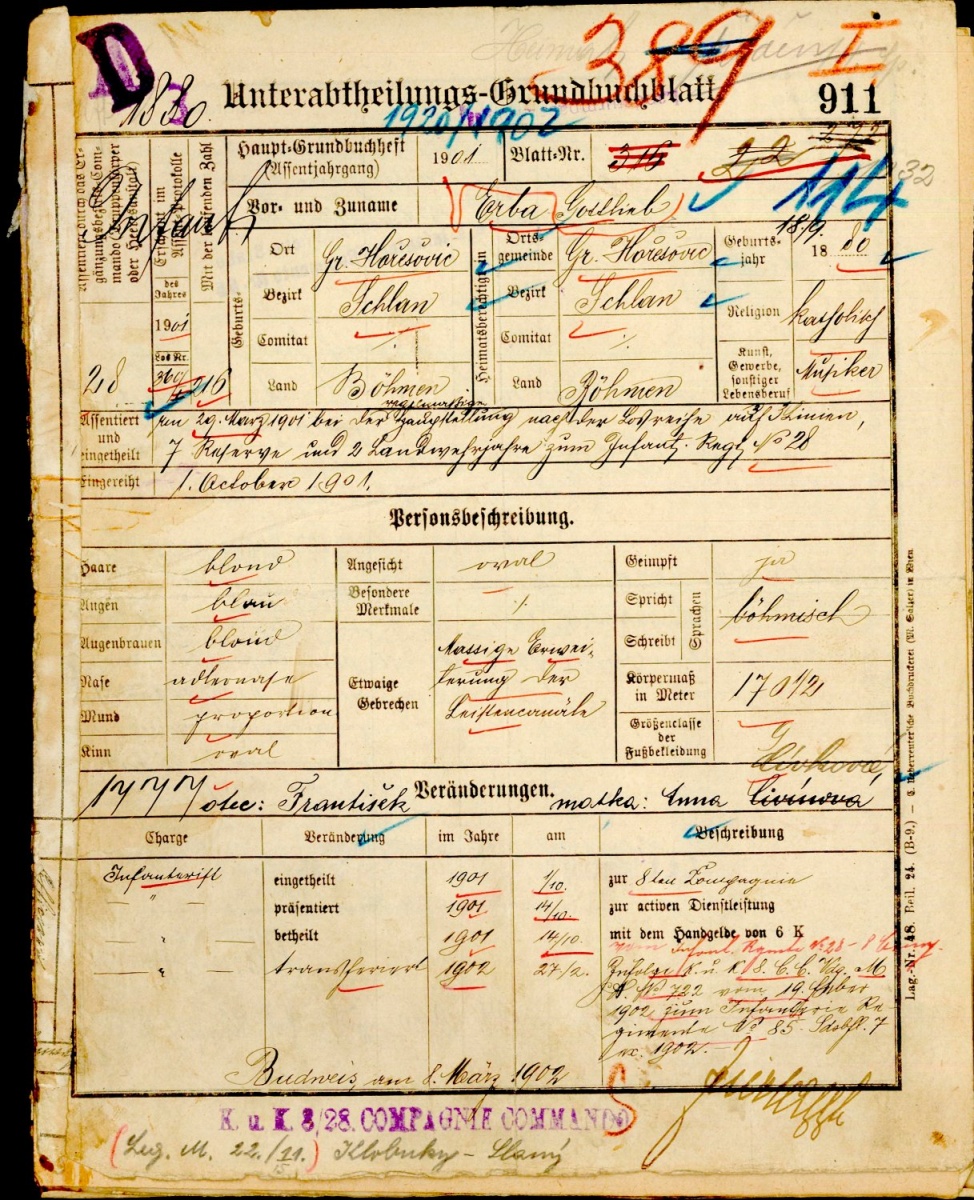 D
3
1880.
389
I
Unterabtheilungs-Grundbuchblatt
911
1920/1902
Haupt-Grundbuchheft
(Assentjahrgang)
1901
Blatt-Nr.
316
114
32
Vor- und Zuname
Erba Gottlieb
Assentiert durch das Ergänzungsbezirks-Commando (Truppenkörper oder Heeresanstalt)
28
Erscheint im Assent-Protokolle
des Jahres
1901
Los Nr.
360/4
Mit der laufenden Zahl
216
Geburts-
Ort
Gr. Hořešovic
Bezirk
Schlan
Comitat
·/.
Land
Böhmen
Heimatsberechtigt in
Orts-
gemeinde
Gr. Hořešovic
Bezirk
Schlan
Comitat
·/.
Land
Böhmen
Geburts-
jahr
1880
Religion
katholisch
Kunst,
Gewerbe,
sonstiger
Lebensberuf
Musiker
Assentiert
und
eingetheilt
am 29. März 1901 bei der regelmässige Hauptstellung nach der Losreihe auf 3 Linien,
7 Reserve und 2 Landwehrjahre zum Infant. Regt. № 28
Eingereiht
1. October 1901.
Personsbeschreibung.
Haare
blond
Augen
blau
Augenbrauen
blond
Nase
adlernase
Mund
proportion
Kinn
oval
Angesicht
oval
Besondere
Merkmale
·/.
Etwaige
Gebrechen
Massige Erwei-
terung der
Leistencanäle
Geimpft
ja
Spricht
Schreibt
Sprachen
böhmisch
Körpermaß
in Meter
Größenclasse
der
Fußbekleidung
9
otec: František
Veränderungen.
matka: Anna Civínová
Charge
Veränderung
im Jahre
am
Beschreibung
Infanterist
eingetheilt
1901
1/10.
zur 8ten Compagnie
"
präsentiert
1901
14/10.
zur activen Dienstleistung
"
betheilt
1901
14/10.
mit dem Handgelde von 6 K
"
transferiert
1902
27/2.
Infolge k. u. k. 8. C. C. Vdg. M
A. № 722 vom 19. Feber
1902 zum Infanterie Re
gimente № 85. Sdsbfl. 7
ex. 1902.
Budweis, am 8. März 1902
K. u. K. 8/28. COMPAGNIE COMMANDO
(Leg. M. 22./11.) Klobuky - Slaný
Lag.-Nr. 48. Beil. 24. (B-9.) — C. Ueberreuter'sche Buchdruckerei (M. Salzer) in Wien.